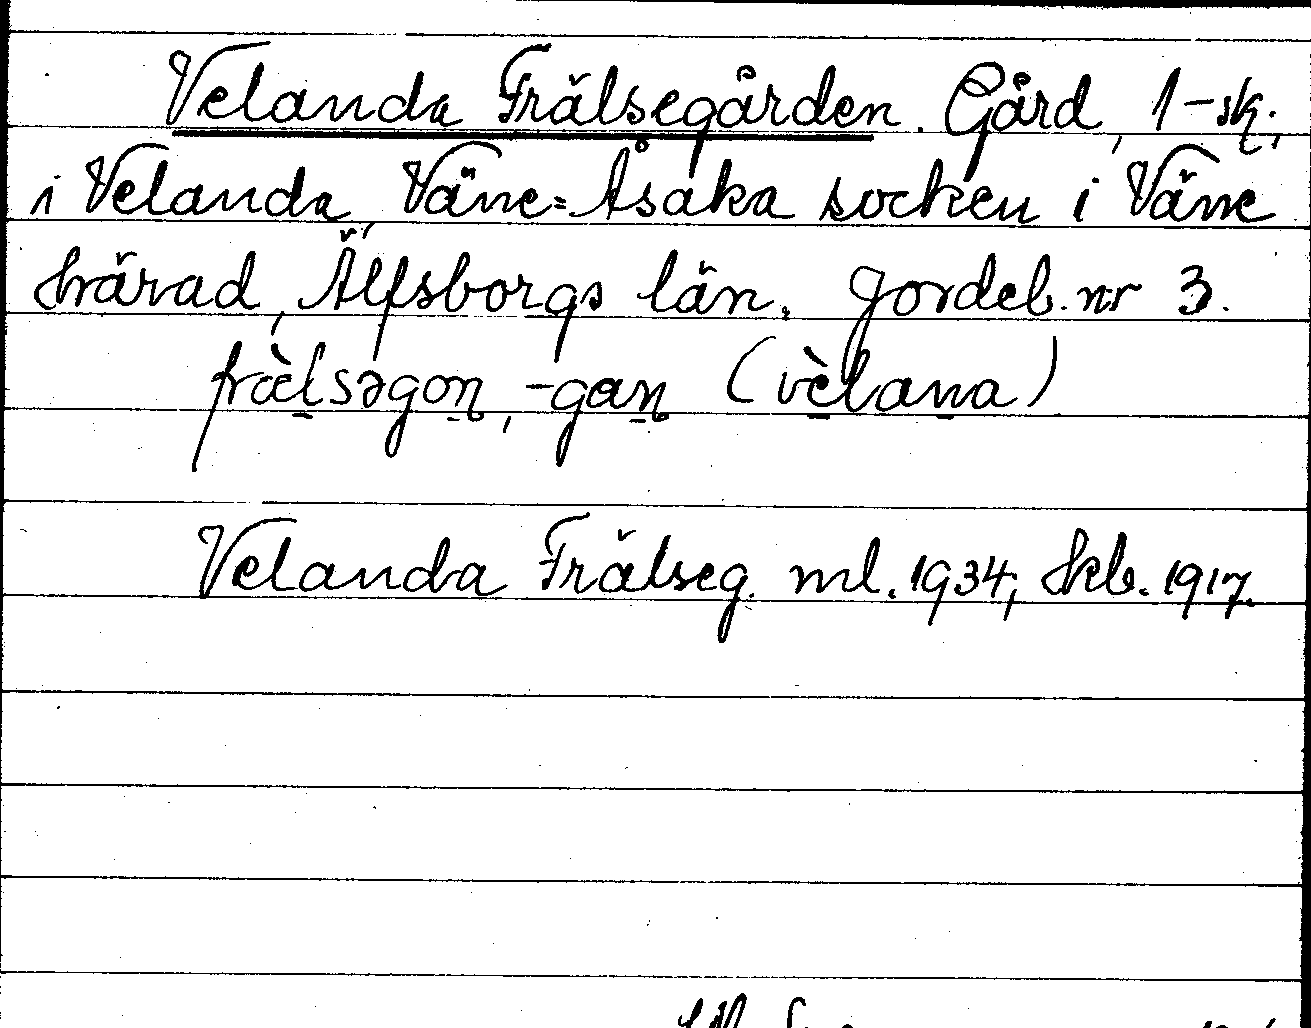 Velanda Frälsegården. Gård, 1-sk.,
i Velanda, Väne=Åsaka socken i Väne
härad, Älfsborgs län. Jordeb. nr 3.
frælsəgon, -gan (vèlana)
Velanda Frälseg. ml. 1934; Skb. 1917.